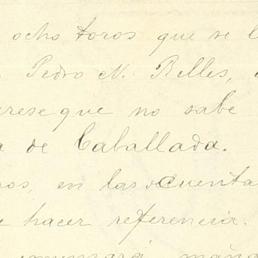 ocho toros que se l
Pedro N. Relles,
rese que no sabe
a de Caballada.
os, en las cuenta
e hacer referencia.